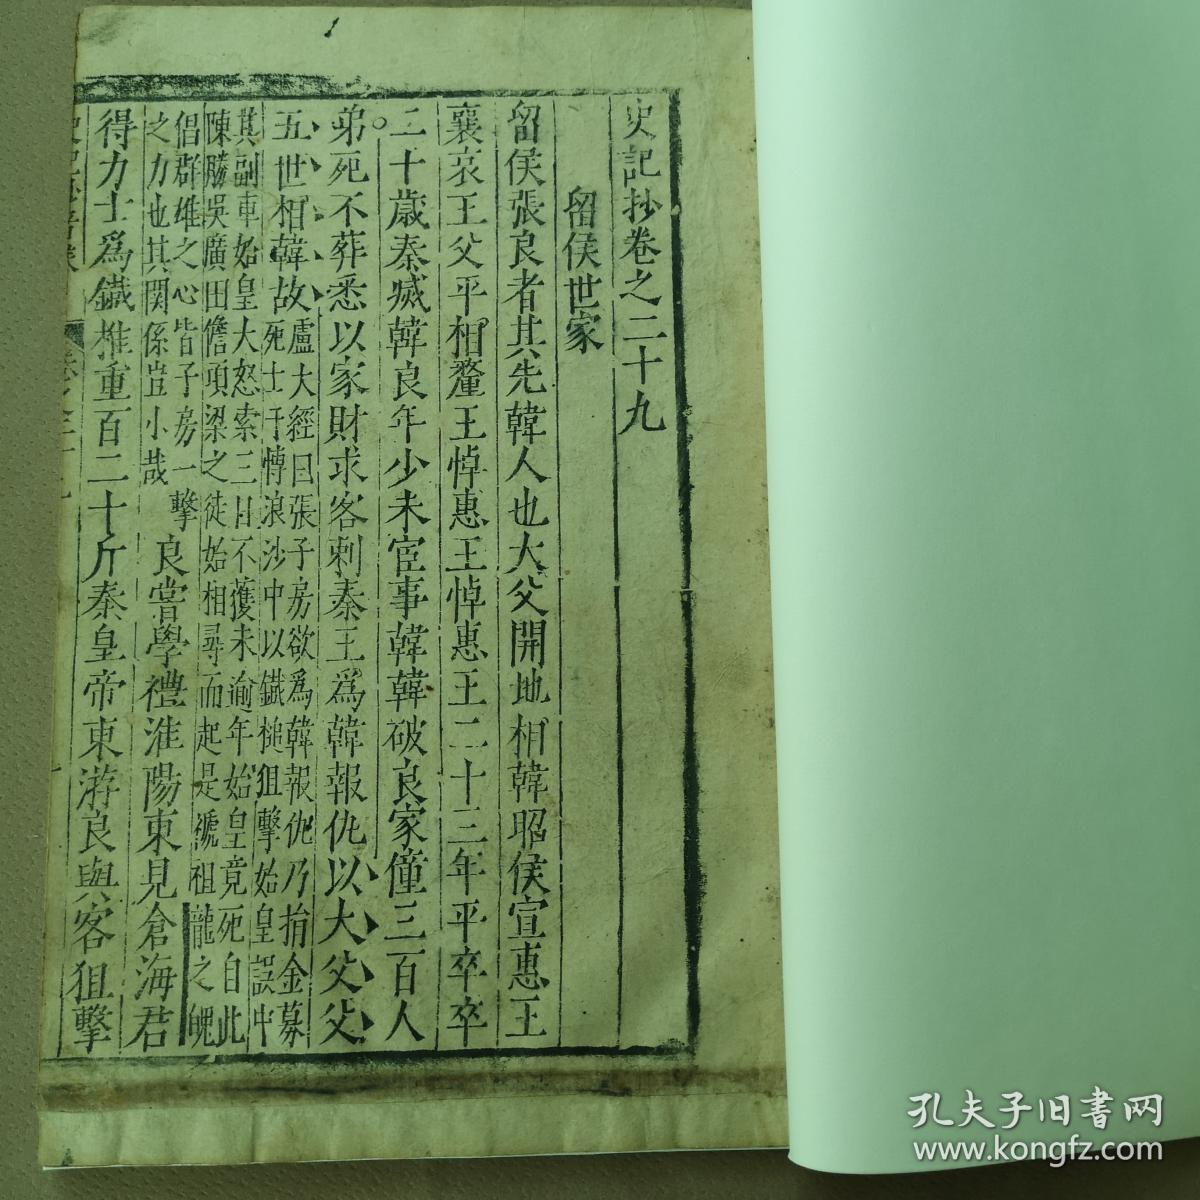 史記抄卷之二十九
留侯世家
留侯張良者其先韓人也大父開地相韓昭侯宣惠王
襄哀王父平相釐王悼惠王悼惠王二十三年平卒卒
二十歲秦滅韓良年少未宦事韓韓破良家僮三百人
弟死不葬悉以家財求客刺秦王爲韓報仇以大父父
五世相韓故
盧大經曰張子房欲爲韓報仇乃捐金募
死士于慱浪沙中以鐵槌狙擊始皇誤中
其副車始皇大怒索三日不獲未逾年始皇竟死自此
陳勝吳廣田儋項梁之徒始相尋而起是禠祖龍之魄
倡群雄之心皆子房一擊
之力也其関係豈小哉
良嘗學禮淮陽東見倉海君
得力士爲鐵椎重百二十斤秦皇帝東游良與客狙擊
1
孔夫子旧書网
www.kongfz.com